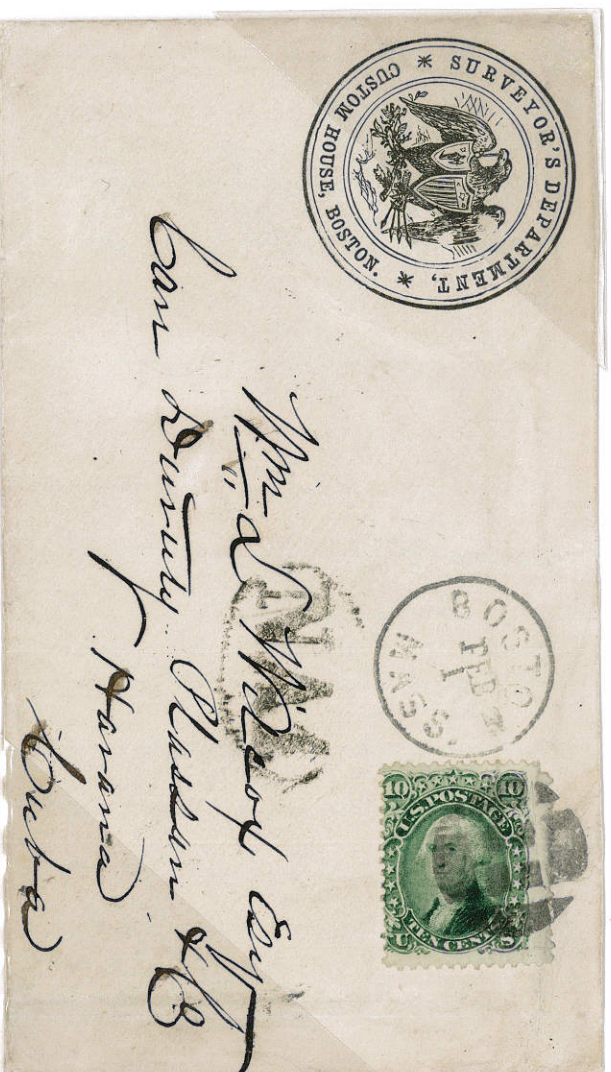 SURVEYOR'S DEPARTMENT,
CUSTOM HOUSE, BOSTON.
BOSTON
FEB
1
MASS.
10 U.S. POSTAGE 10
U TEN CENTS S
NA
Wm L Wilcox Esq
Care Duruty Classen & Co
Havana
Cuba